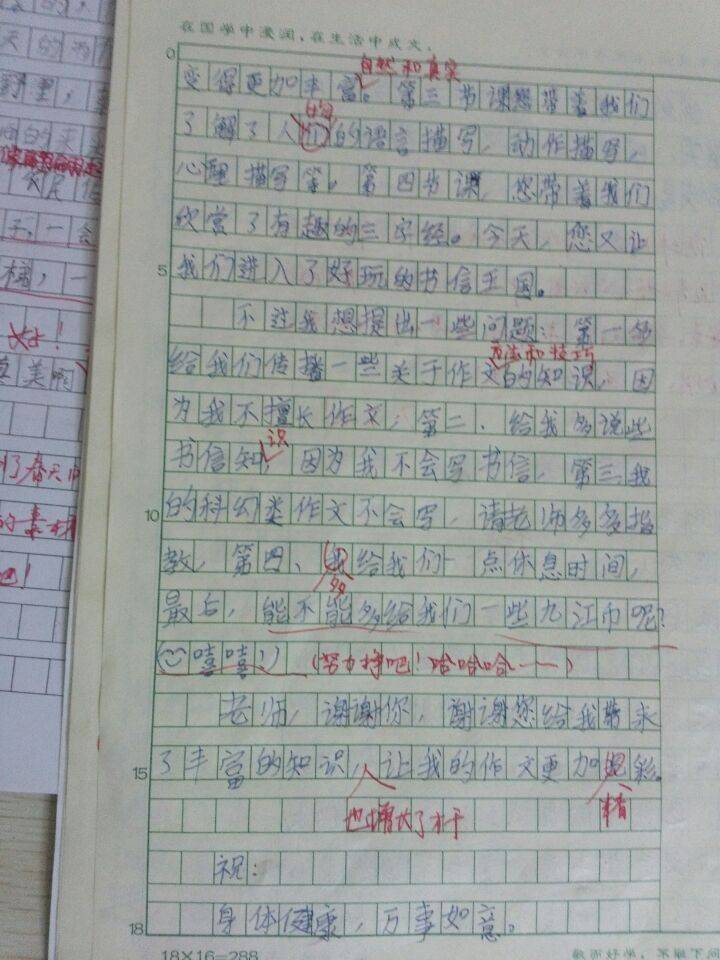 在国学中浸润，在生活中成文。
0
自然和真实
变得更加丰富。第三节课您带着我们
的
了解了人们的语言描写，动作描写，
心理描写等。第四节课，您带着我们
欣赏了有趣的三字经。今天，您又让
5
我们进入了好玩的书信王国。
不过我想提出一些问题：第一多
方法和技巧
给我们传播一些关于作文的知识，因
为我不擅长作文，第二、给我多说些
识
书信知，因为我不会写书信，第三我
10
的科幻类作文不会写，请老师多多指
教，第四、我给我们一点休息时间，
多
最后，能不能多给我们一些九江币呢？
嘻嘻！）
（努力挣吧！哈哈哈……）
老师，谢谢你，谢谢您给我带来
15
了丰富的知识，让我的作文更加彩。
也增大了
精
祝：
18
身体健康，万事如意。
18×16=288
天的
野里，
子，一会
美啊
了春天
的素材
吧！